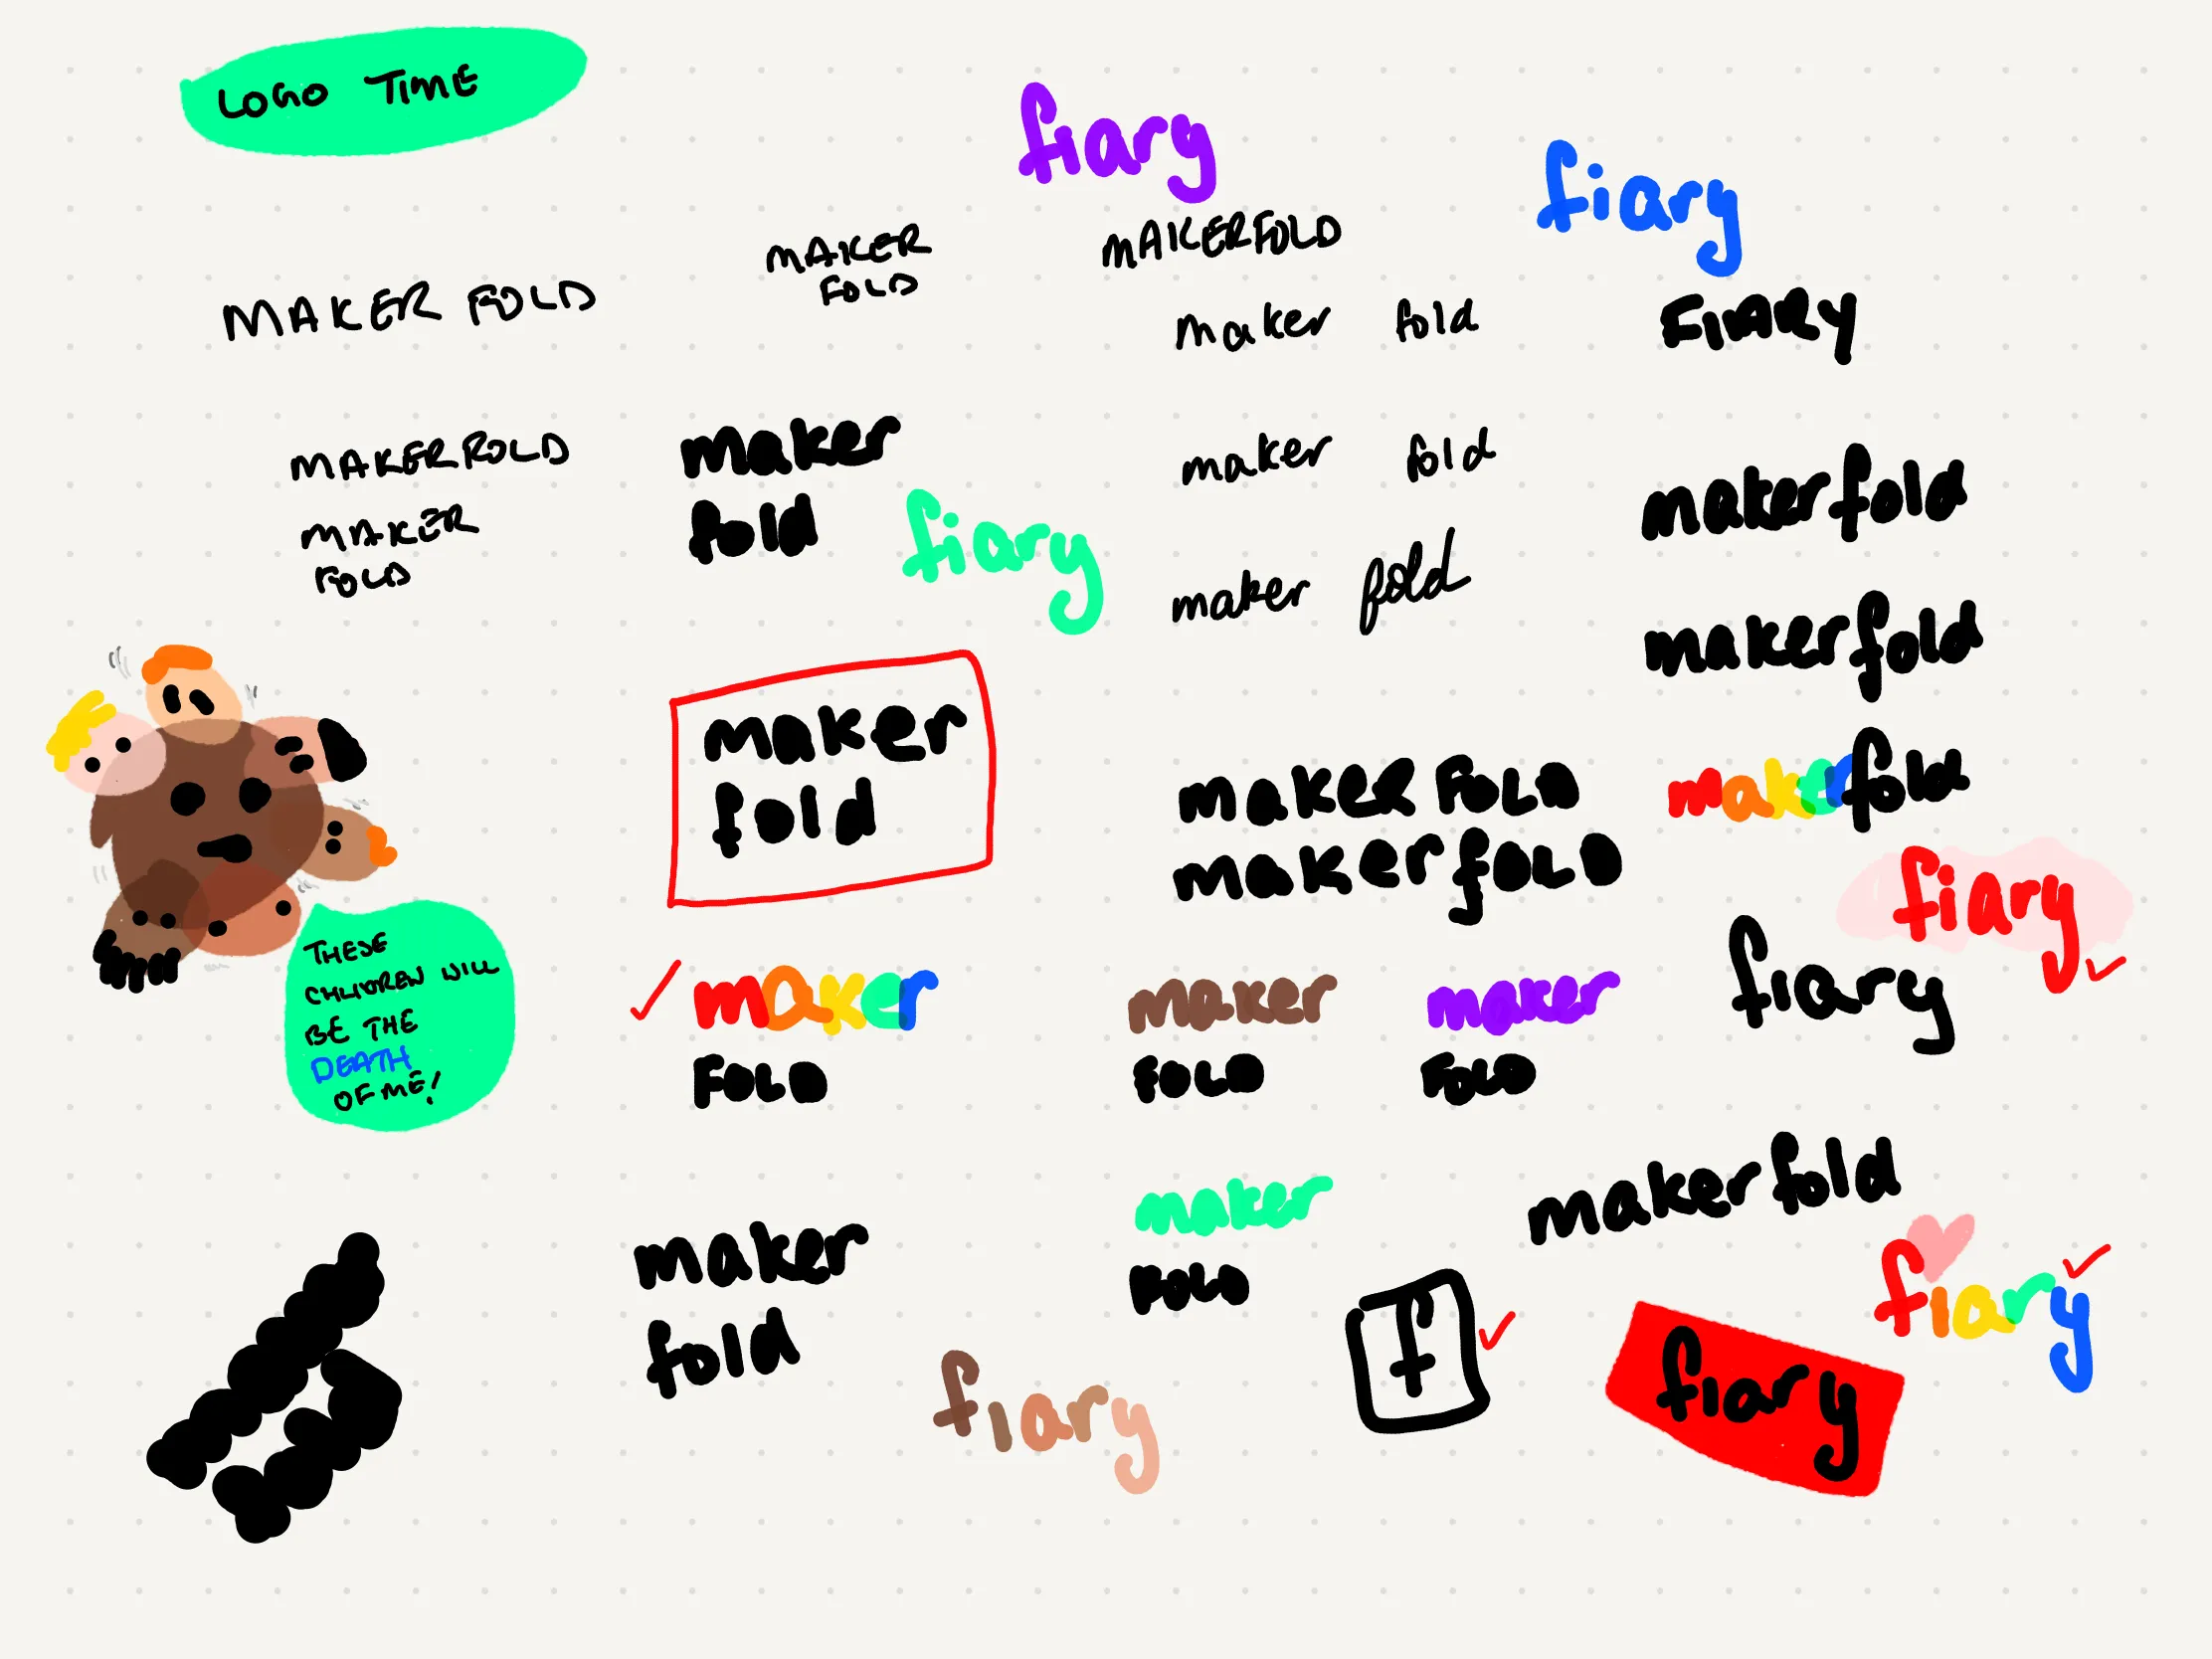 LOGO TIME
fiary
fiary
MAKER
FOLD
MAKERFOLD
MAKER FOLD
maker fold
FIARY
MAKERFOLD
MAKER
FOLD
maker
fold
fiary
maker fold
maker fold
makerfold
makerfold
maker
fold
MAKER FOLD
makerfOLD
makerfold
fiary
fiary
THESE
CHLIDREN WILL
BE THE
DEATH
OF ME!
maker
FOLD
maker
FOLD
maker
FOLD
maker
fold
maker
FOLD
makerfold
fiary
f
fiary
fiary